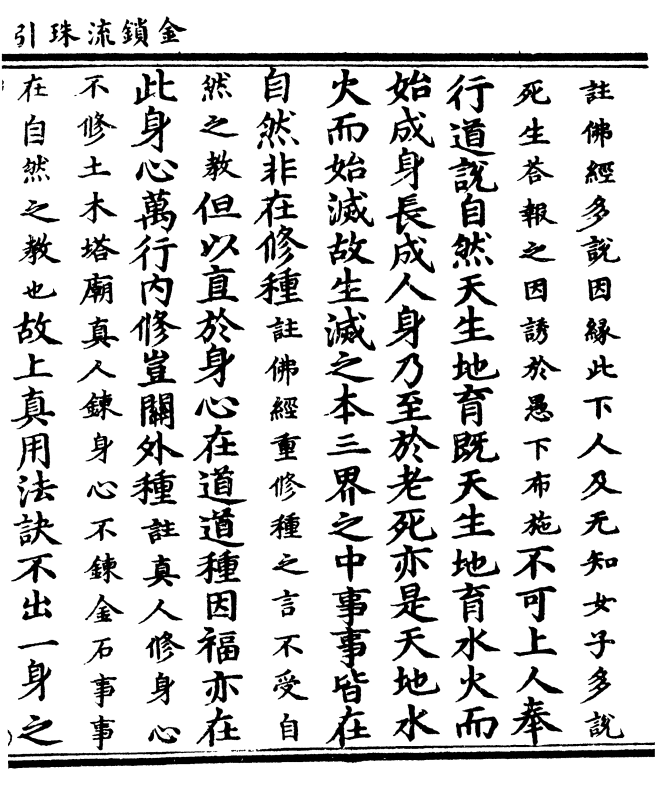 金鎖流珠引
註佛經多說因緣此下人及无知女子多說
死生荅報之因誘於愚下布施不可上人奉
行道說自然天生地育旣天生地育水火而
始成身長成人身乃至於老死亦是天地水
火而始滅故生滅之本三界之中事事皆在
自然非在修種註佛經重修種之言不受自
然之教但以直於身心在道道種因福亦在
此身心萬行內修豈關外種註真人修身心
不修土木塔廟真人鍊身心不鍊金石事事
在自然之教也故上真用法訣不出一身之